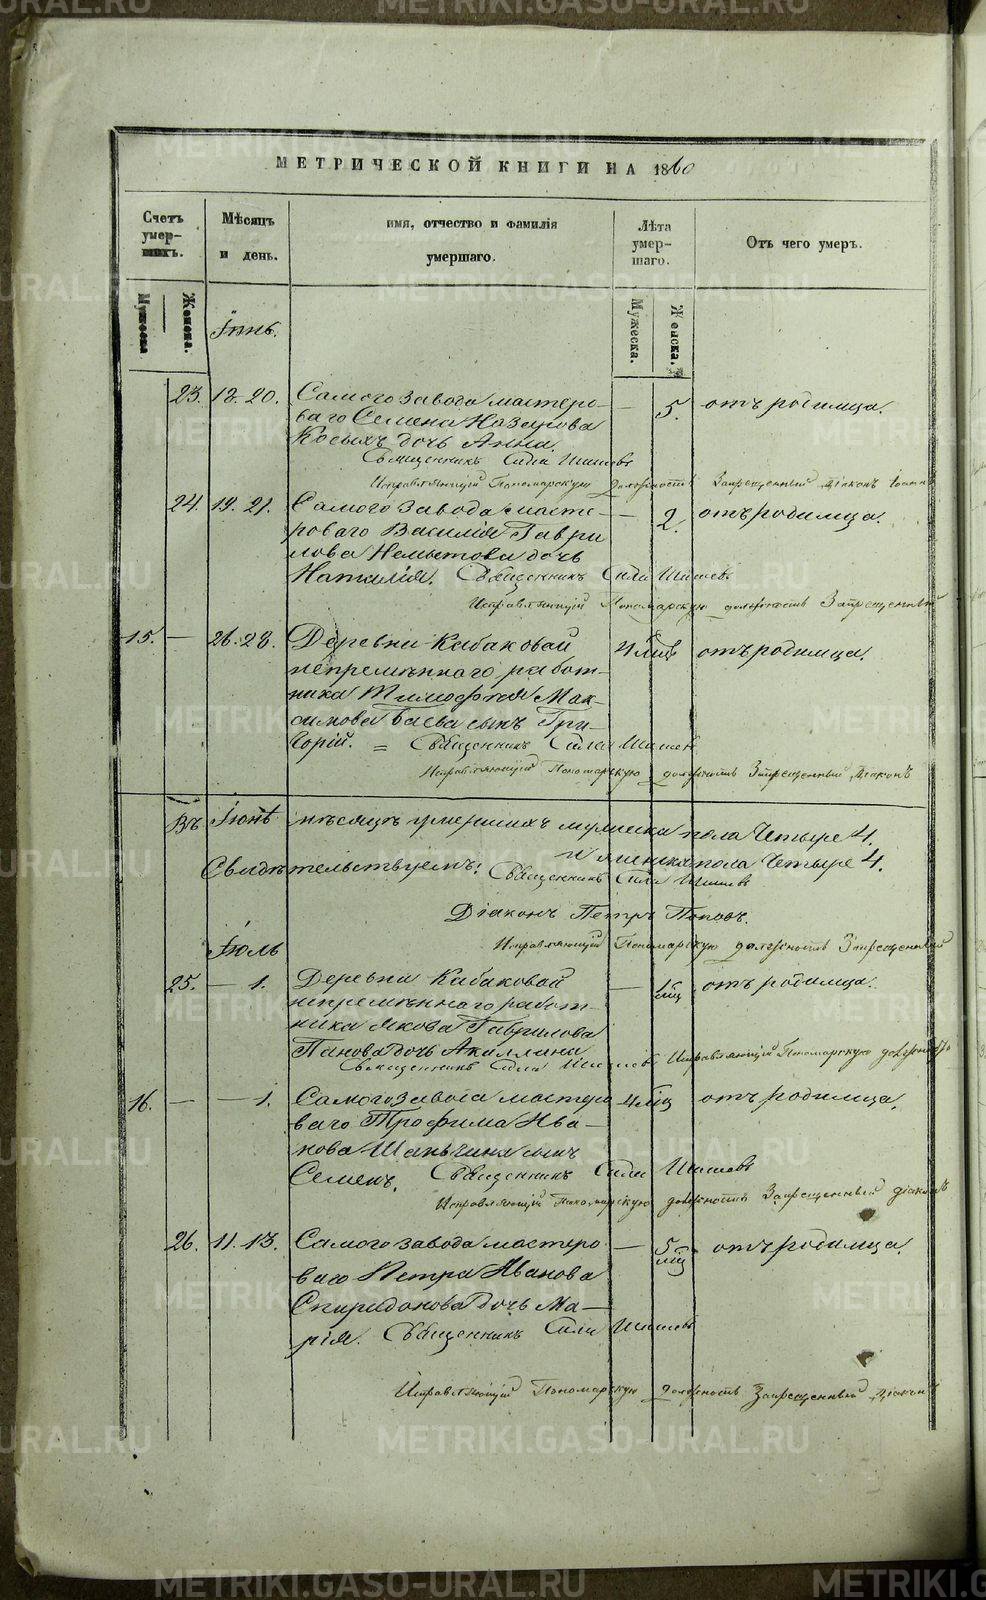 МЕТРИЧЕСКОЙ КНИГИ НА 1860
Счетъ умер-шихъ.
Мѣсяцъ и день.
имя, отчество и фамилія умершаго.
Лѣта умер-шаго.
Отъ чего умеръ.
Мужеска
Женска.
Мужеска.
Женска.
Іюнь.
23. 18. 20. Самого завода мастеро- — 5. отъ родимца.
ваго Семена Назарова
Косыхъ дочь Анна.
Священникъ Сила
Исправляющій Пономарскую должность Запрещенный Діаконъ Іоаннъ
24. 19. 21. Самого завода масте- — 2. отъ родимца.
роваго Василія Гаври
лова дочь
Наталія. Священникъ Сила
Исправляющій Пономарскую должность Запрещенный
15. — 26. 28. Деревни Кабаковой 4 мца отъ родимца.
непремѣннаго работ-
ника Тимофея Мак-
симова Баева сынъ Гри-
горій. = Священникъ Сила
Исправляющій Пономарскую должность Запрещенный Діаконъ
Въ Іюнѣ мѣсяцѣ умершихъ мужеска пола Четыре 4.
и женска пола Четыре 4.
Свидѣтельствуемъ: Священникъ Сила
Діаконъ Петръ Поповъ.
Іюль Исправляющій Пономарскую должность Запрещенный
25. — 1. Деревни Кабаковой — 1 мц отъ родимца.
непремѣннаго работ-
ника Якова Гаврилова
Панова дочь Акилина
Священникъ Сила Исправляющій Пономарскую должность
16. — — 1. Самого завода мастеро 4 мц отъ родимца.
ваго Трофима Ива-
нова сынъ
Семенъ. Священникъ Сила
Исправляющій Пономарскую должность Запрещенный діаконъ
26. 11. 13. Самого завода мастеро — 5 мц отъ родимца.
ваго Петра Иванова
Спиридонова дочь Ма-
рія. Священникъ Сила
Исправляющій Пономарскую должность Запрещенный Діаконъ
METRIKI.GASO-URAL.RU